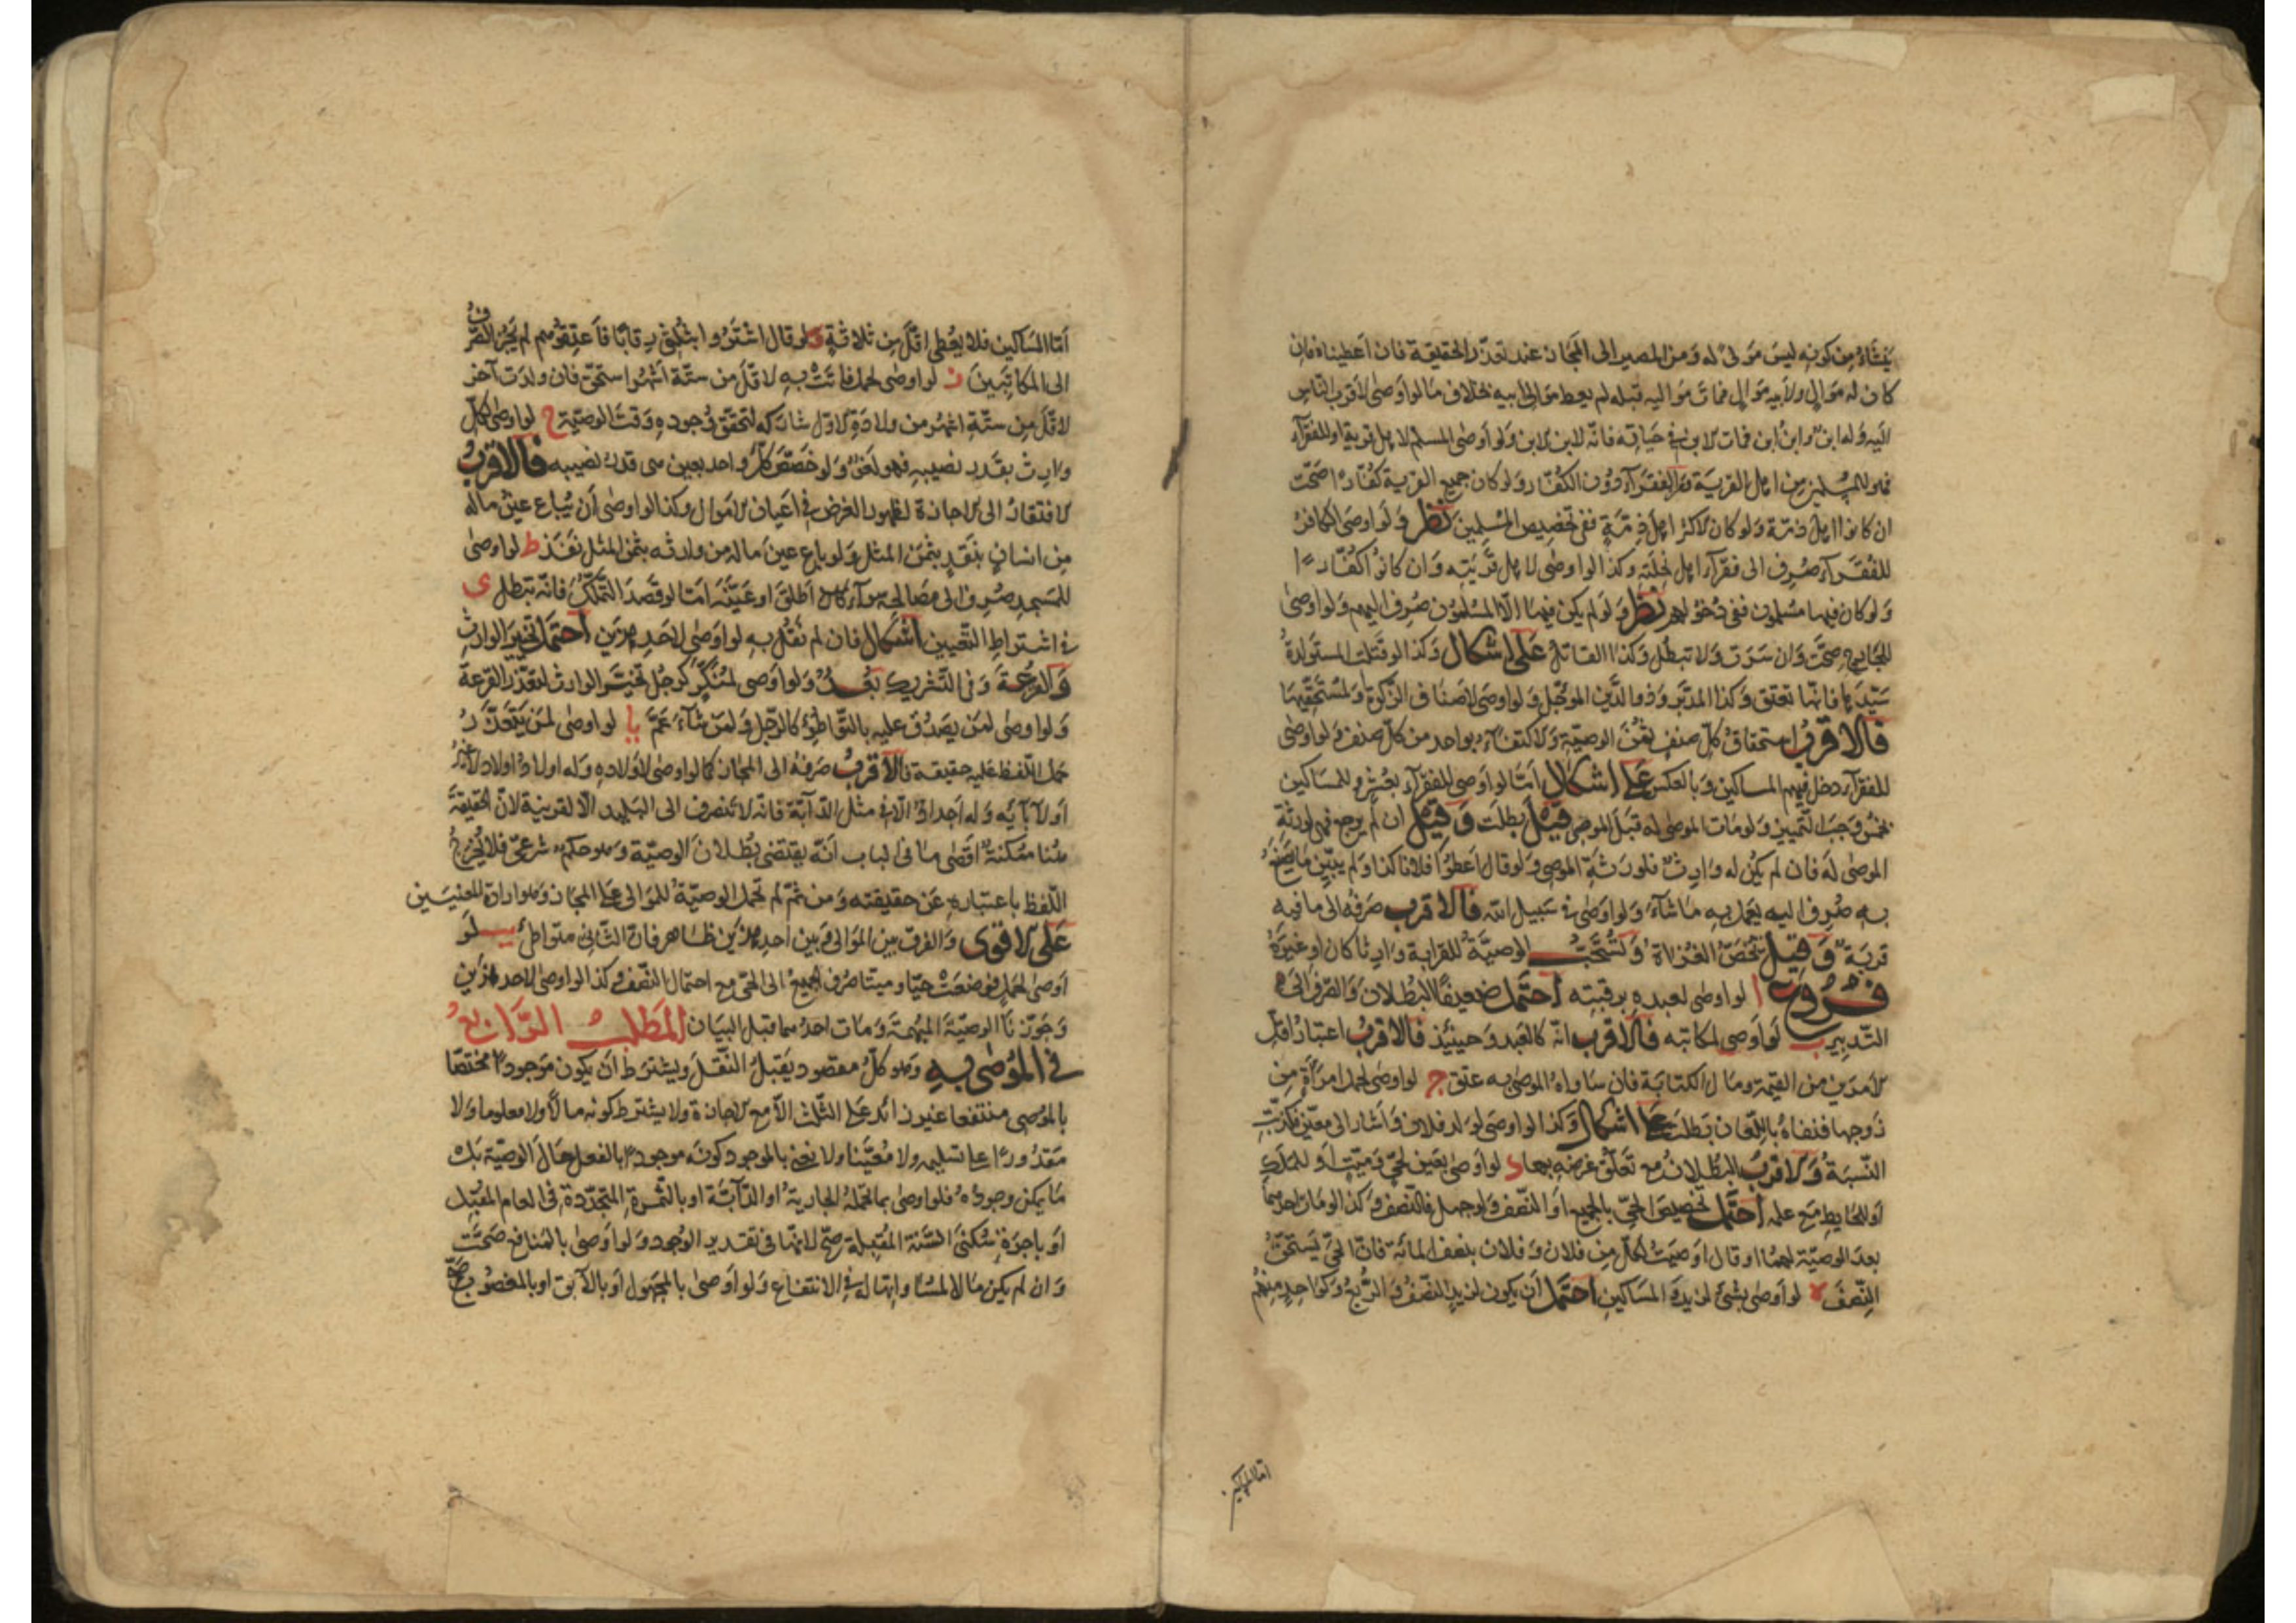 ينشأ من كونه ليس مولى له ومن المصير الى المجاز عند تعذر الحقيقة فان اعطيناه فان
كان له موالٍ ولأبيه موالٍ فمات مواليه قبله لم يعط موالى ابيه بخلاف ما لو اوصى لأقرب الناس
اليه وله ابنٌ وابن ابن فمات الابن في حياته فانه لابن الابن ولو اوصى المسلم لاهل قرية او للفقرآء
فهو للمسلمين من اهل القرية والفقرآء دون الكفّار ولو كان جميع القرية كفّارًا صحّت
ان كانوا اهل ذمّة ولو كان الاكثر اهل ذمّةٍ ففى تخصيص المسلمين نظر ولو اوصى الكافر
للفقرآء صرف الى فقرآء اهل نحلته وكذا لو اوصى لاهل قريته وان كانوا كفّارًا
ولو كان فيها مسلمون ففى دخولهم نظر ولو لم يكن فيها الّا المسلمون صرف اليهم ولو اوصى
للجارح صحّت وان سرت ولا تبطل وكذا القاتل على اشكال وكذا لو قتلت المستولدة
سيّدها فانها تعتق وكذا المدبّر وذو الدّين المؤجّل ولو اوصى لاصناف الزكوة ولمستحقيها
فالاقرب استحقاق كلّ صنف ثمن الوصيّة والاكتفاء بواحد من كلّ صنف ولو اوصى
للفقرآء دخل فيهم المساكين وبالعكس على اشكال امّا لو اوصى للفقرآء بعُشر وللمساكين
بخمس وجب التّمييز ولو مات الموصى له قبل الموصى قيل بطلت وقيل ان لم يرجع فهى لورثة
الموصى له فان لم يكن له وارثٌ فلورثة الموصى ولو قال اعطوا فلانا كذا ولم يبيّن ما يصنع
به صُرف اليه يعمل به ما شآء ولو اوصى في سبيل الله فالاقرب صرفه الى ما فيه
قربةٌ وقيل تخصّ الغزاة وتستحبّ الوصيّة للقرابة وارثا كان او غيره
فروع ا لو اوصى لعبده برقبته احتمل ضعيفًا البطلان والصّرف الى
التدبير ب لو اوصى لمكاتبه فالاقرب انّه كالعبد وحينئذ فالاقرب اعتبار اقلّ
الامرين من القيمة ومال الكتابة فان ساواه الموصى به عتق ج لو اوصى لحمل امرأةٍ من
زوجها فنفاه باللعان بطلت على اشكال وكذا لو اوصى لولد فلان واشار الى معيّن فكذّبت
النّسبة والاقرب البطلان مع تعلّق غرضه بها د لو اوصى بعين لحيّ وميّت او للملك
او للحايط مع علمه احتمل تخصيص الحيّ بالجميع او النّصف ولو جهل فالنّصف وكذا لو مات احدهما
بعد الوصيّة لهما او قال اوصيت لكلّ من فلان وفلان بنصف المائة فانّ الحيّ يستحقّ
النّصف ه لو اوصى بشئ لزيد والمساكين احتمل ان يكون لزيد النّصف والرّبع وكواحد منهم
امّا المساكين
امّا المساكين فلا يعطى اقلّ من ثلاثةٍ و لو قال اشتروا بثلثى رقابًا فاعتقوهم لم يجز الصّرف
الى المكاتبين ز لو اوصى لحمل فاتت به لاقلّ من ستّة اشهر استحقّ فان ولدت آخر
لاقلّ من ستّة اشهر من ولادة الاوّل شاركه لتحقّق وجوده وقت الوصيّة ح لو اوصى لكلّ
وارث بقدر نصيبه فهو لغوٌ ولو خصّص كلّ واحد بعين هى قدر نصيبه فالاقرب
الافتقار الى الاجازة لظهور الغرض في اعيان الاموال وكذا لو اوصى ان يُباع عين ماله
من انسانٍ بنقدٍ بثمن المثل ولو باع عين ماله من وارثه بثمن المثل نفذ ط لو اوصى
للمسجد صُرف الى مصالحه سوآء كان اطلق او عيّنه امّا لو قصد التّملّك فانّه تبطل ى
في اشتراط التّعيين اشكال فان لم نقل به لو اوصى لاحد هذين احتمل تخيير الوارث
والقرعة وفى التّشريك بعدٌ ولو اوصى لمنكّرٍ كرجل تخيّر الوارث لتعذّر القرعة
ولو اوصى لمن يصدق عليه بالتّواطؤ كالرّجل ولمن شآء عمّ يا لو اوصى لمن يتعذّر
حمل اللّفظ عليه حقيقة فالاقرب صرفه الى المجاز كما لو اوصى لاولاده وله اولاد اولاد لا غير
او لآبآئه وله اجداد الّا في مثل الدآبّة فانه لا تنصرف الى البليد الّا لقرينة لانّ الحقيقة
هنا ممكنةٌ اقصى ما فى الباب انّه يقتضى بطلان الوصيّة وهو حكمٌ شرعىّ فلا يُخرج
اللّفظ باعتباره عن حقيقته ومن ثمّ لم تحمل الوصيّة للموالى على المجاز وهو ارادة المعنيين
على الاقوى والفرق بين الموالى وبين احد هذين ظاهر فانّ الثّانى متواطئ يب لو
اوصى لحملٍ فوضعت حيّا وميتا صُرف الجميع الى الحىّ مع احتمال النّصف وكذا لو اوصى لاحد هذين
وجوّزنا الوصيّة المبهمة ومات احدهما قبل البيان المطلب الرّابع
في الموصى به وهو كلّ مقصود يقبل النّقل ويشترط ان يكون موجودًا مختصّا
بالموصى منتفعا غير زائد على الثّلث الّا مع الاجازة ولا يشترط كونه مالًا ولا معلوما ولا
مقدورًا على تسليمه ولا معيّنا ولا نعنى بالموجود كونه موجودًا بالفعل حال الوصيّة بل
ما يمكن وجوده فلو اوصى بما تحمله الجارية او الدآبّة او بالثّمرة المتجدّدة فى العام المقبل
او باجرة سُكنى السّنة المقبلة صحّ لانها فى تقدير الوجود ولو اوصى بالمنافع صحّت
وان لم يكن مالا لمساواتها له في الانتفاع ولو اوصى بالمجهول او بالآبق او بالمغصوب صحّ